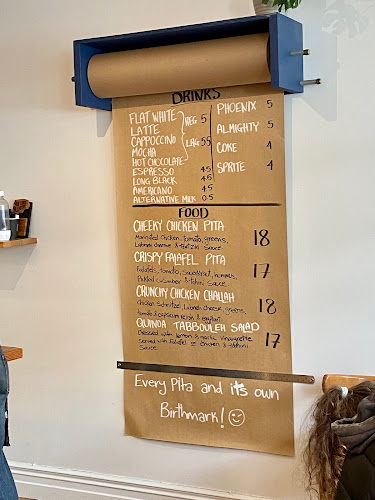 DRINKS
FLAT WHITE
LATTE
CAPPOCCINO
MOCHA
HOT CHOCOLATE
REG 5
LRG 5.5
ESPRESSO 4.5
LONG BLACK 4.5
AMERICANO 4.5
ALTERNATIVE MILK 0.5
PHOENIX 5
ALMIGHTY 5
COKE 4
SPRITE 4
FOOD
CHEEKY CHICKEN PITA 18
Marinated Chicken, tomato, greens,
Labneh cheese & tzatziki Sauce
CRISPY FALAFEL PITA 17
Falafels, tomato, Sauerkraut, hummus,
Pickled cucumber & tahini Sauce
CRUNCHY CHICKEN CHALLAH 18
Chicken Schnitzel, Labneh cheese, greens,
tomato & capsicum relish & eggplant
QUINOA TABBOULEH SALAD 17
Dressed with lemon & garlic vinaigrette
Served with falafel or chicken & tahini
Sauce
Every Pita and its own
Birthmark!